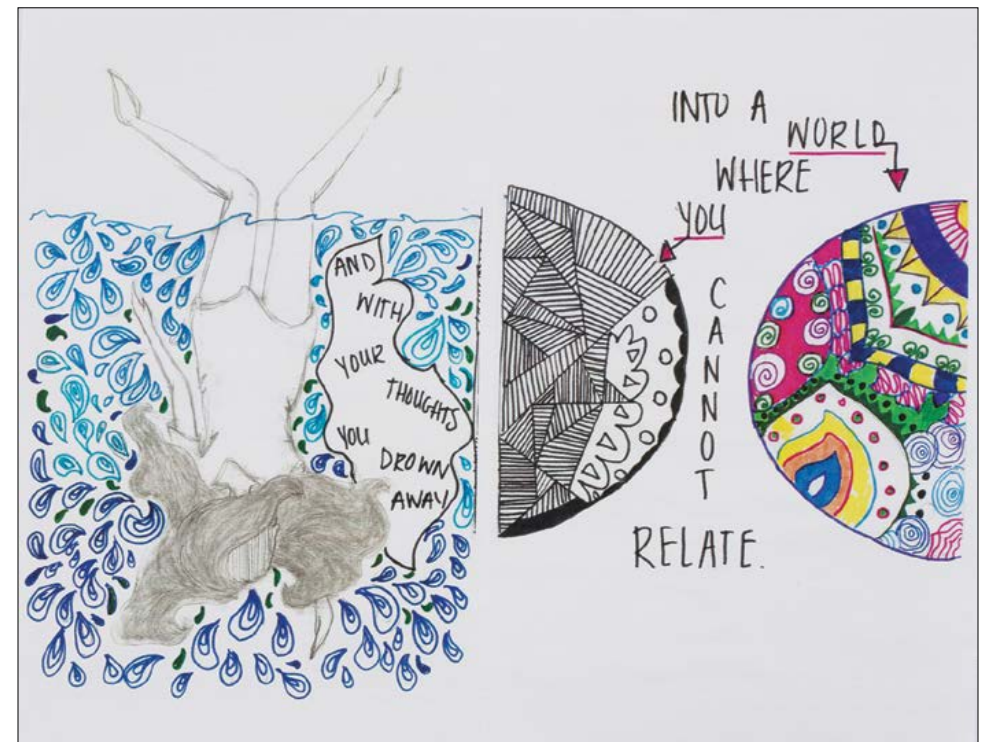 AND
WITH
YOUR
THOUGHTS
YOU
DROWN
AWAY
INTO A
WORLD
WHERE
YOU
CANNOT
RELATE.